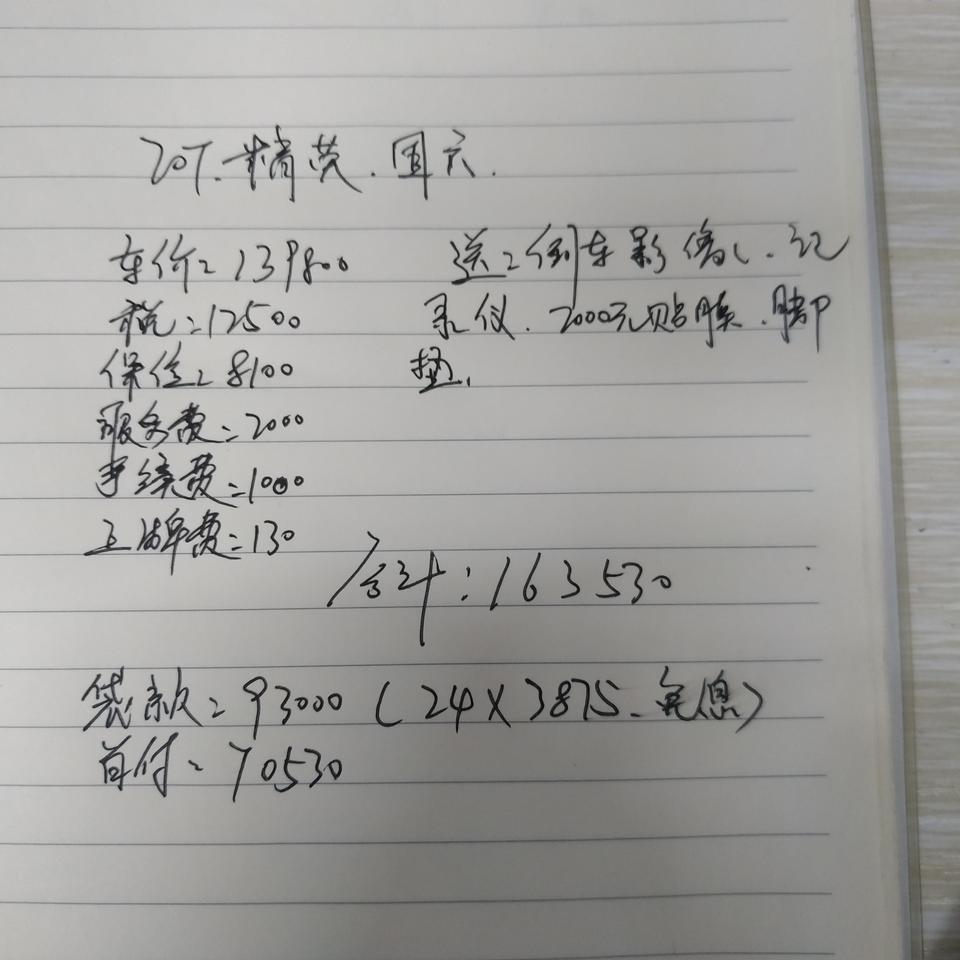 20T.精英.国六.
车价:139800
税:12500
保险:8100
服务费:2000
手续费:1000
上牌费:130
送:倒车影像、记
录仪.2000元贴膜.脚
垫.
合计:163530
贷款:93000(24×3875.免息)
首付:70530